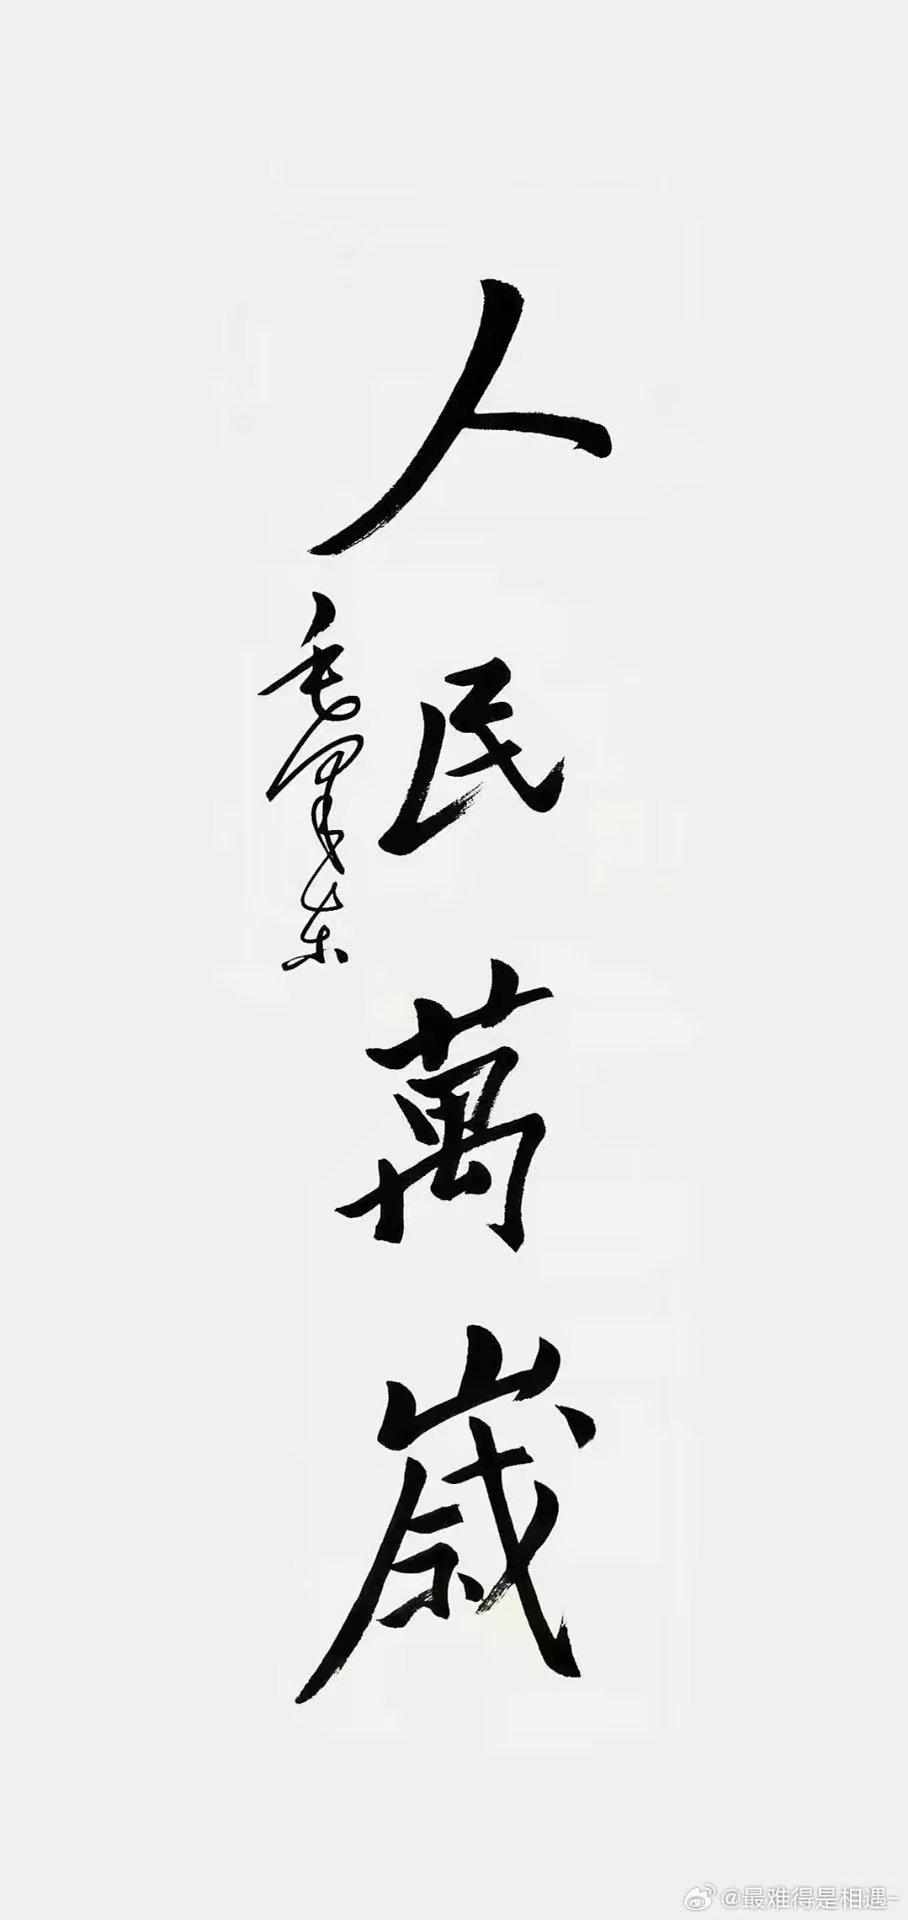 人民萬歳
毛澤东
@最难得是相遇-